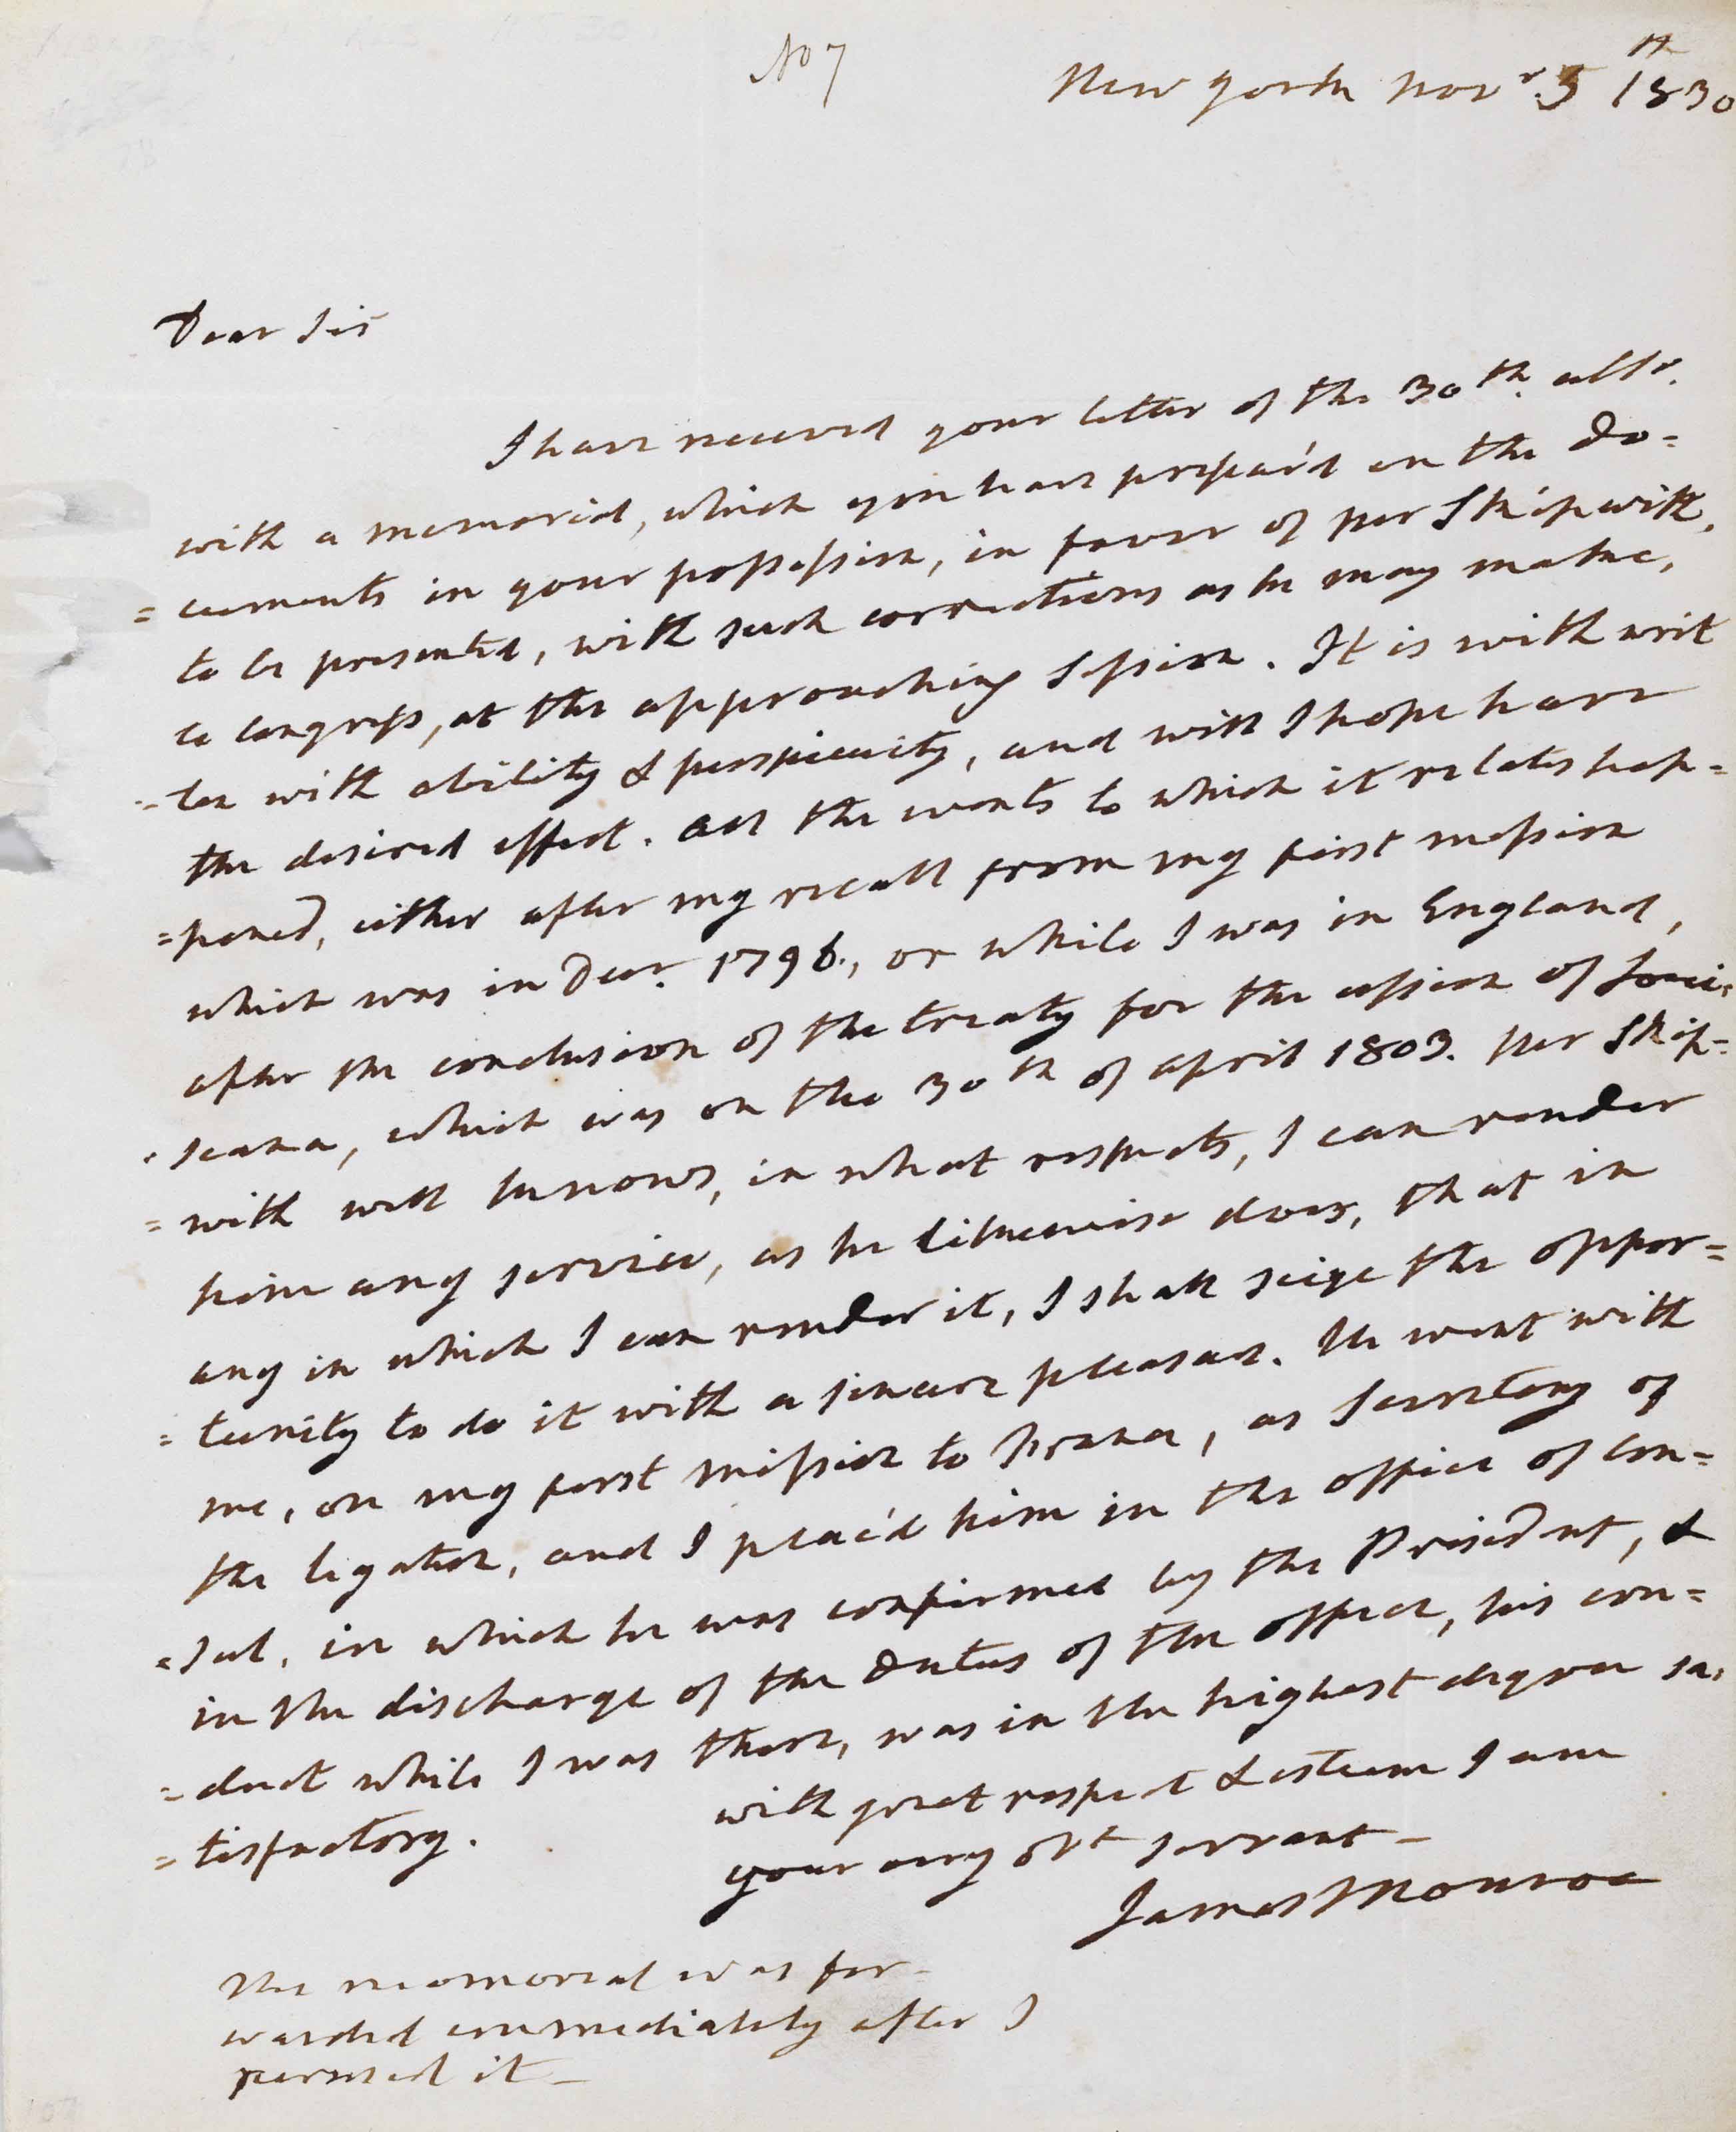 No 7
New York Novr. 5th 1830
Dear Sir
I have received your letter of the 30th. ulto.
with a memorial, which you have prepar'd on the do=
=cuments in your possession, in favor of Mr Skipwith,
to be presented, with such corrections as he may make,
to Congress, at the approaching session. It is with writ
=ten with ability & perspicuity, and will I hope have
the desired effect. All the events to which it relates hap=
=pened, either after my recall from my first mission
which was in Decr. 1796., or while I was in England,
after the conclusion of the treaty for the cession of Loui=
=seana, which was on the 30th of april 1803. Mr Skip=
=with well knows, in what respects, I can render
him any service, as he likewise does, that in
any in which I can render it, I shall seize the oppor=
=tunity to do it with a sincere pleasure. He went with
me, on my first mission to France, as Secretary of
the legation, and I plac'd him in the office of Con=
=sul, in which he was confirmed by the President, &
in the discharge of the duties of the office, his con=
=duct while I was there, was in the highest degree sa=
=tisfactory.
with great respect & esteem I am
your very obt servant—
James Monroe
The memorial was for-
warded immediately after I
perused it—